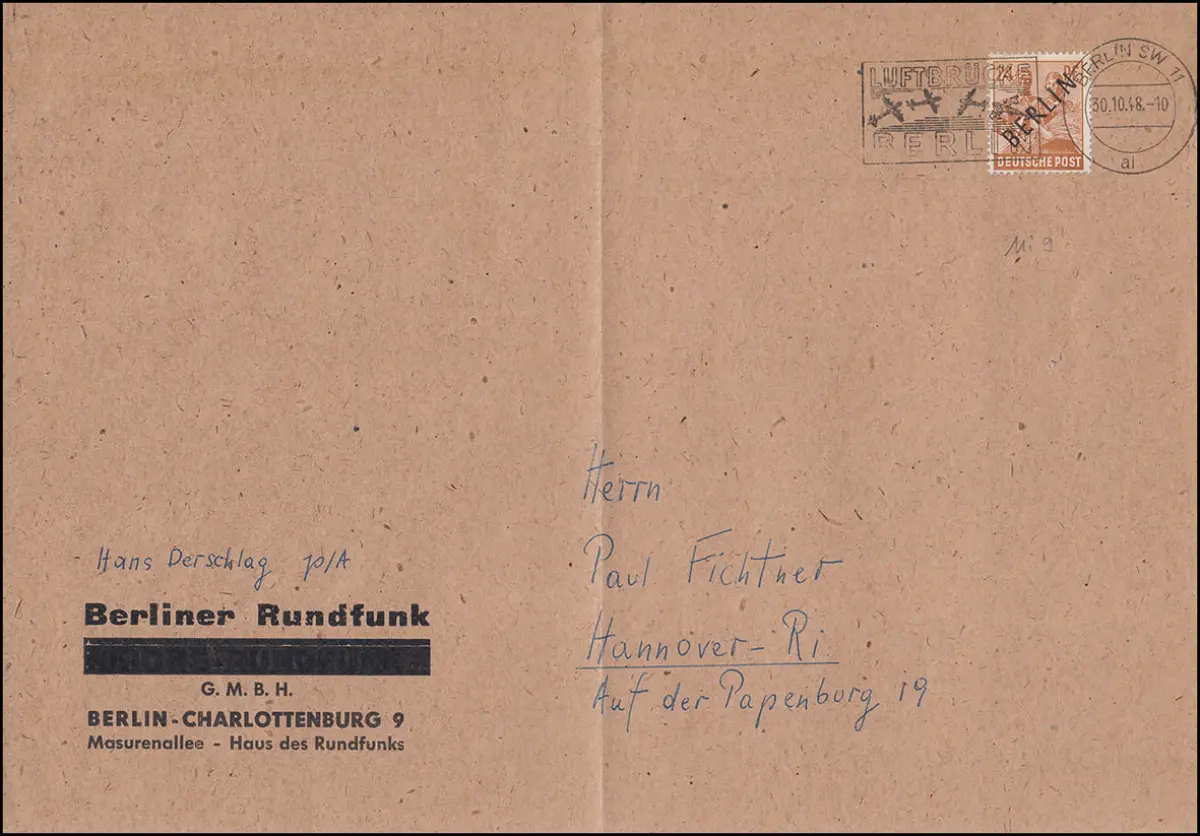 LUFTBRÜCKE
BERLIN
24
BERLIN
DEUTSCHE POST
BERLIN SW 11
30.10.48.-10
al
Mi 9
Herrn
Paul Fichtner
Hannover-Ri
Auf der Papenburg 19
Hans Derschlag
Berliner Rundfunk
G. M. B. H.
BERLIN-CHARLOTTENBURG 9
Masurenallee - Haus des Rundfunks